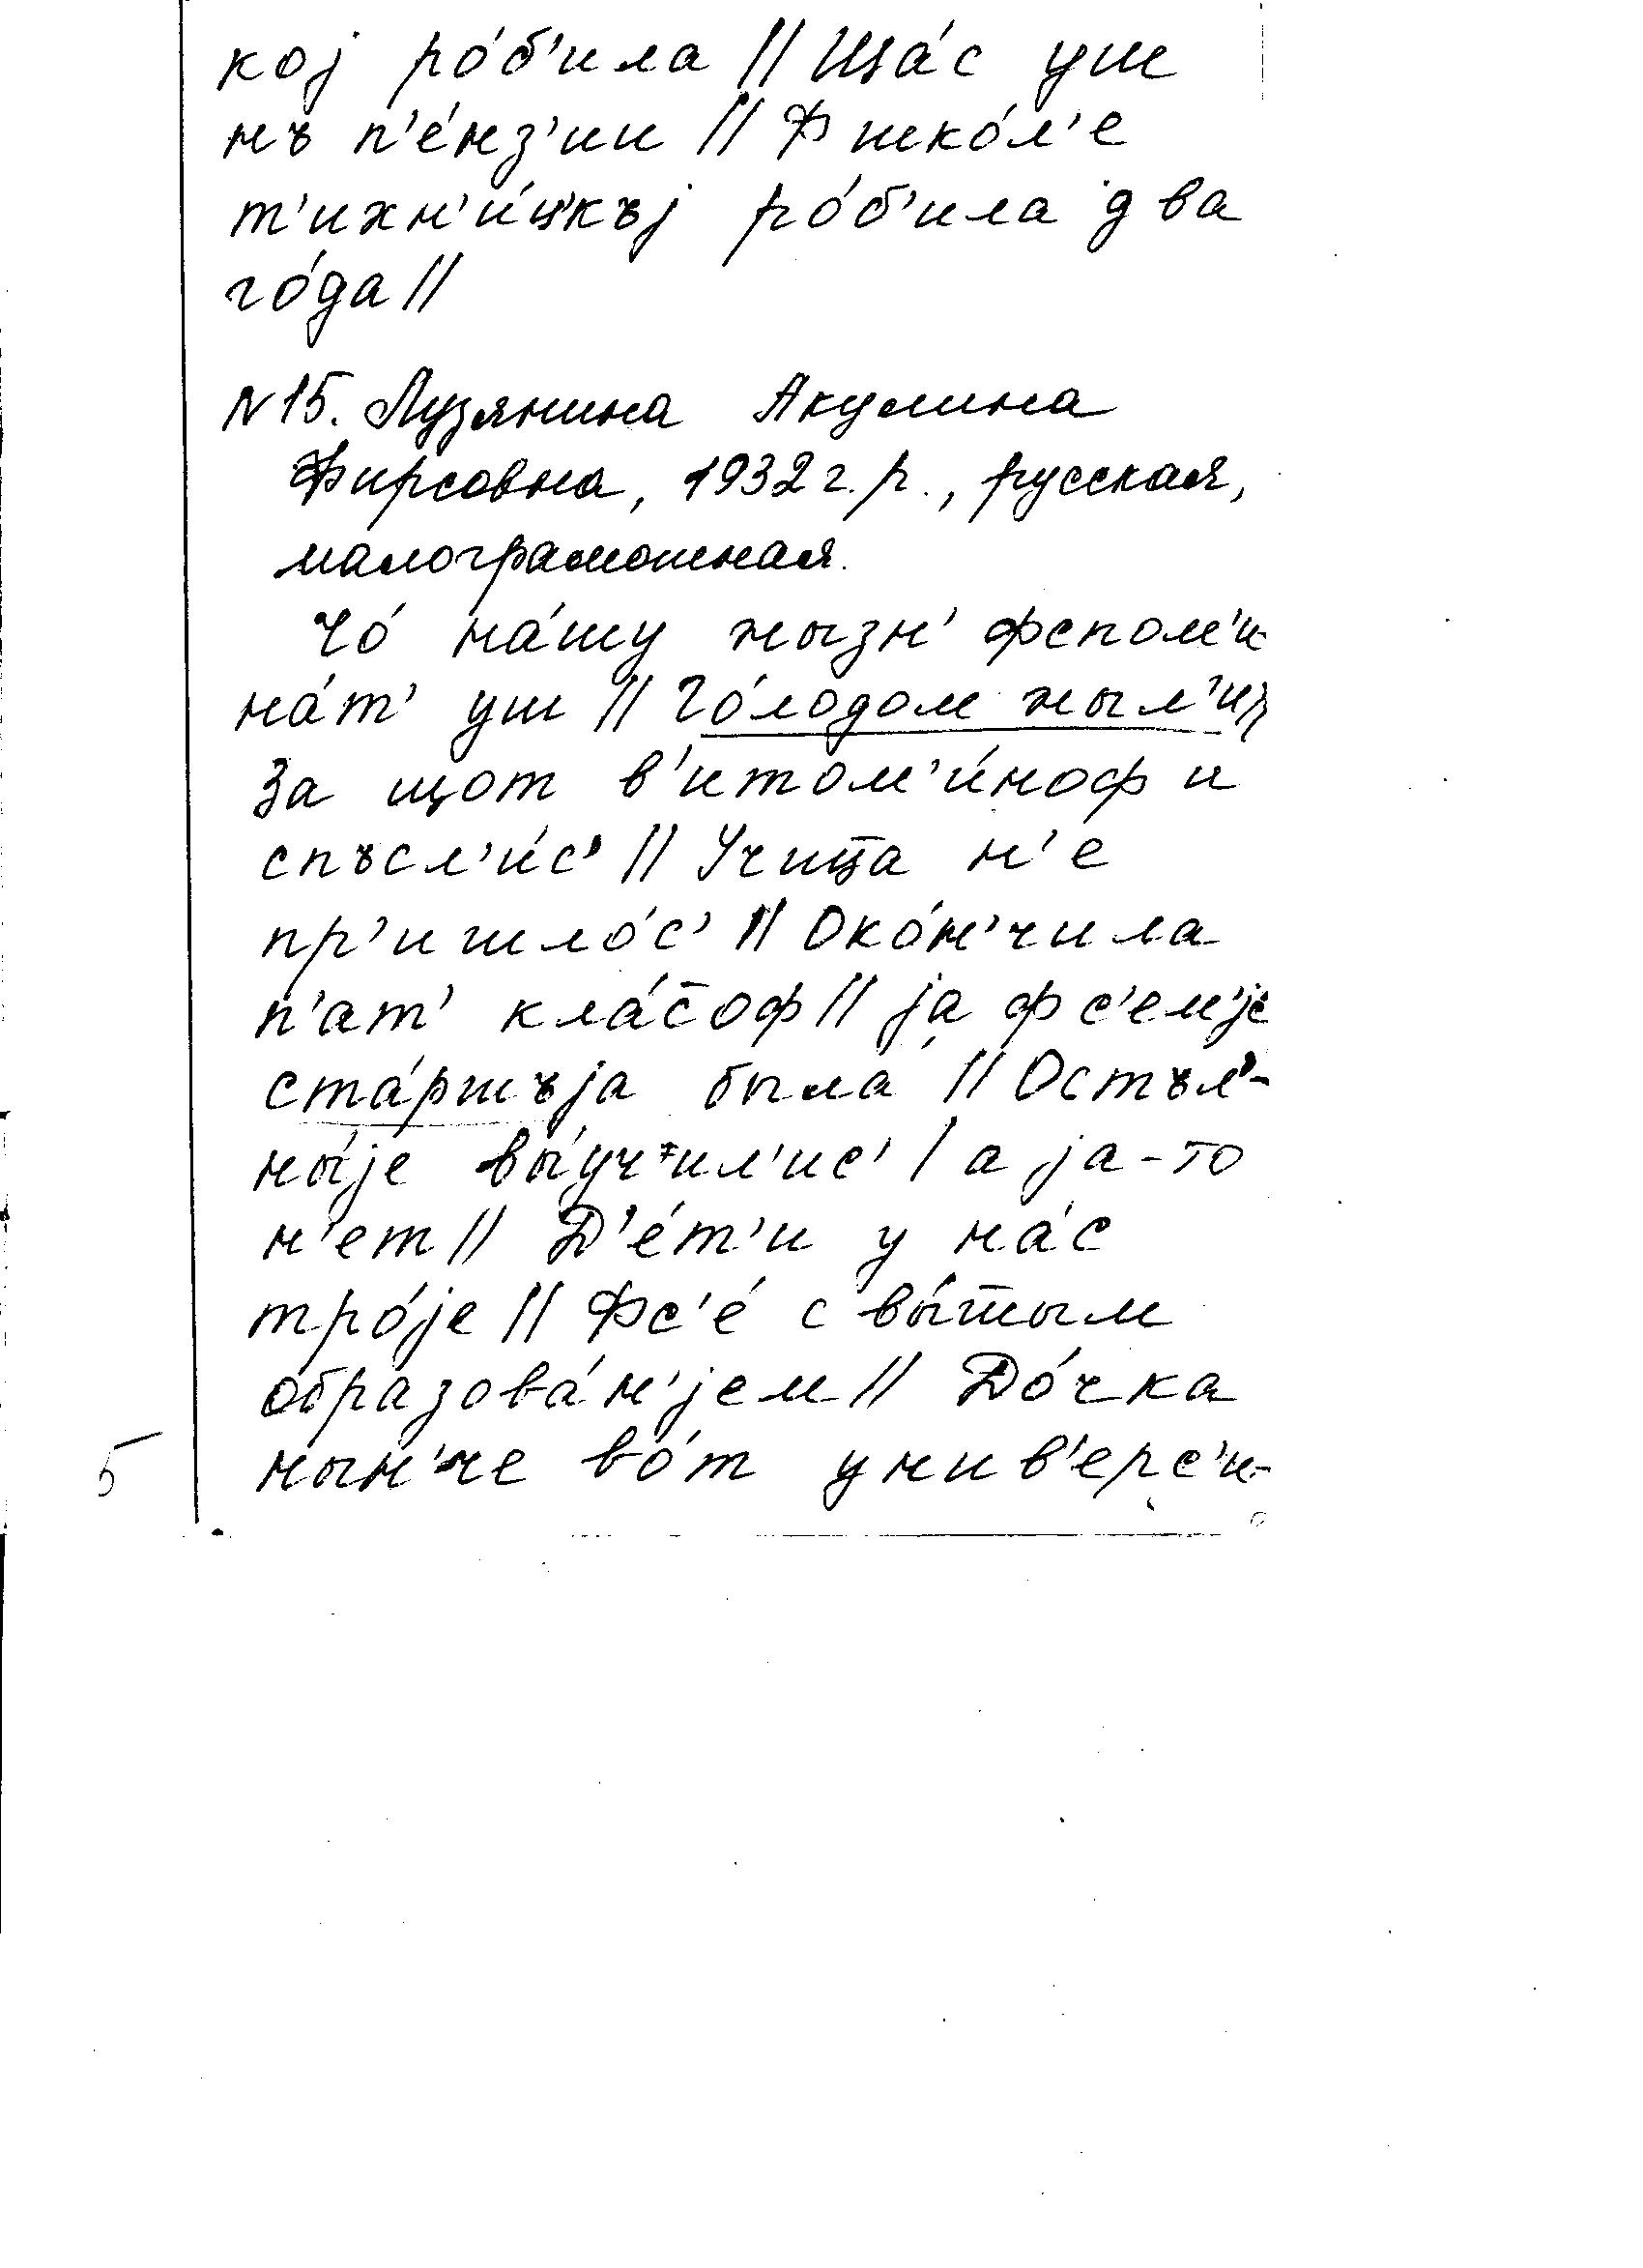 кој ро́б'ила || Ща́с уш
нъ п'е́нз'ии || Ф шко́л'е
т'ихн'и́цкъј ро́б'ила два
го́да ||
N 15. Лузянина Акулина
Фирсовна, 1932 г. р., русская,
малограмотная.
Чо́ на́шу жызн' фспом'и-
на́т' уш || Го́лодом жыл'и ||
За щот в'итом'и́ноф и
спъсл'и́с' || Учиц̅а н'е
пр'ишло́с' || Око́н'чила
п'ат' кла́с̅оф || ја ф с'ем'је
ста́ршъја была́ || Остъл'-
ны́је вы́уч'ил'ис' / а ја-то
н'ет || Д'е́т'и у на́с
тро́је || Фс'е́ с вы́ш̅ым
образова́н'јем || До́чка
нын'че во́т унив'ерс'и-
5